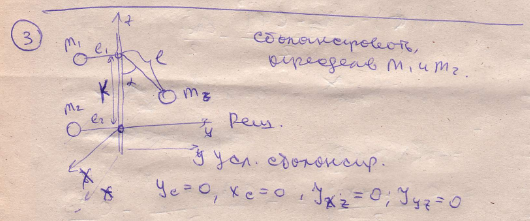 3
z
m₁ e₁ l
α
K
m₃
m₂ e₂
y
x
y
x
Сбалансировать,
определив m₁ и m₂
Реш.
Усл. сбалансир.
y_c = 0, x_c = 0, J_xz = 0; J_yz = 0